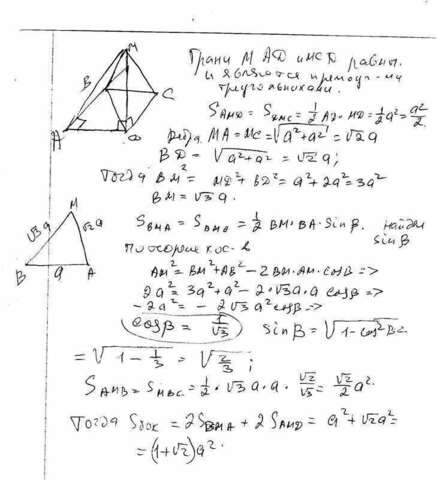 M
B
C
A
D
Грани MAD и MCD равны.
и являются прямоуг-ми
треугольниками.
S_AMD = S_DMC = 1/2 AD · MD = 1/2 a² = a²/2.
Ребра MA = MC = √(a² + a²) = √2 a
BD = √(a² + a²) = √2 a;
Тогда BM² = MD² + BD² = a² + 2a² = 3a²
BM = √3 a.
S_BMA = = 1/2 BM · BA · sin β. Найдем
sin β
По теореме кос-в
M
√3 a
√2 a
B
a
A
AM² = BM² + AB² - 2BM · AM · cos β =>
2a² = 3a² + a² - 2 · √3 a · a cos β =>
-2a² = - 2√3 a² cos β =>
cos β = 1/√3 sin β = √(1 - cos² β =
= √(1 - 1/3) = √(2/3);
S_AMB = S_MBC = 1/2 · √3 a · a · √2/√3 = √2/2 a².
Тогда S_бок = 2S_BMA + 2S_AMD = a² + √2 a² =
= (1 + √2) a².